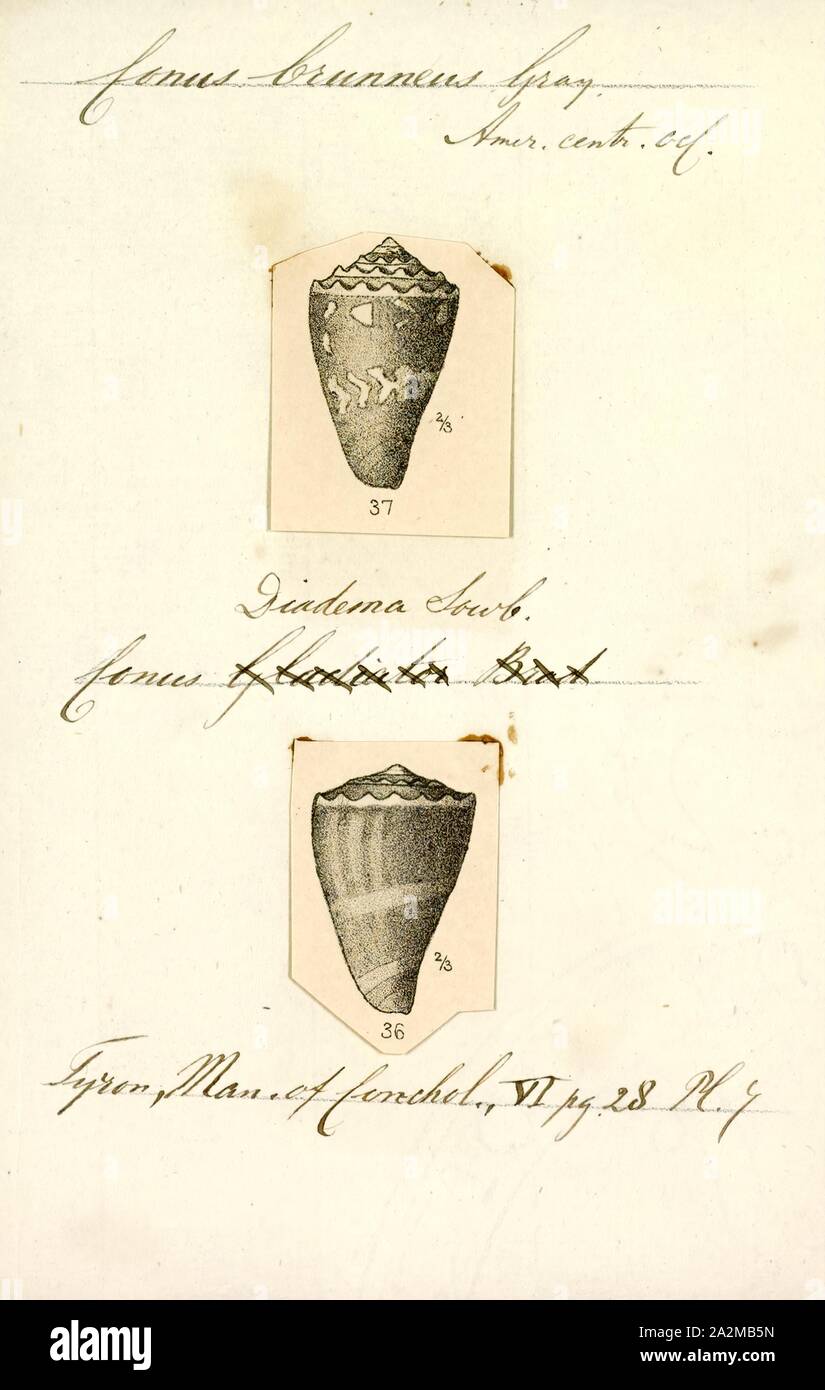 Conus brunneus Gray.
Amer. centr. occ.
2/3
37
Diadema Sowb.
Conus Gladiator Brod
2/3
36
Tyron, Man. of Conchol., VI pg. 28 Pl. 7
alamy
Image ID: 2A2MB5N
www.alamy.com